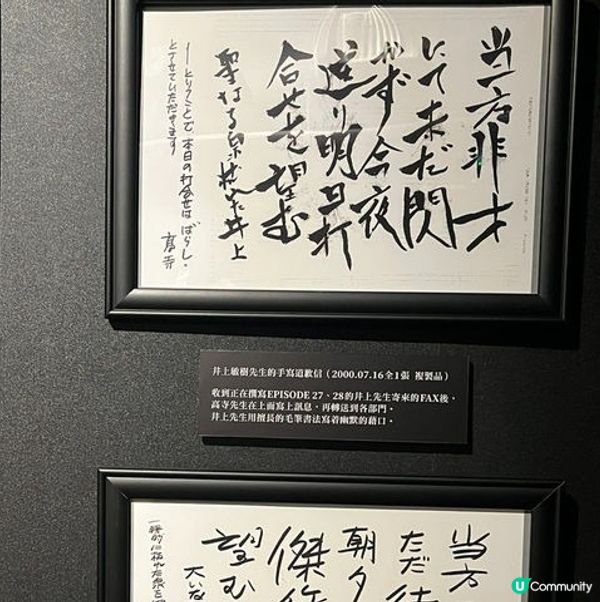 当方非才
にて未だ閃
かず 今夜
送り明日打
合せを望む
聖なる泉枯れた井上
―ということで、本日の打合せは ばらし。
とさせていただきます 髙寺
井上敏樹先生的手寫道歉信（2000.07.16全1張 複製品）
收到正在撰寫EPISODE 27、28的井上先生寄來的FAX後，
高寺先生在上面寫上訊息，再轉送到各部門。
井上先生用擅長的毛筆書法寫着幽默的藉口。
当方
ただ
朝夕
傑作
望む
大いな
U Community